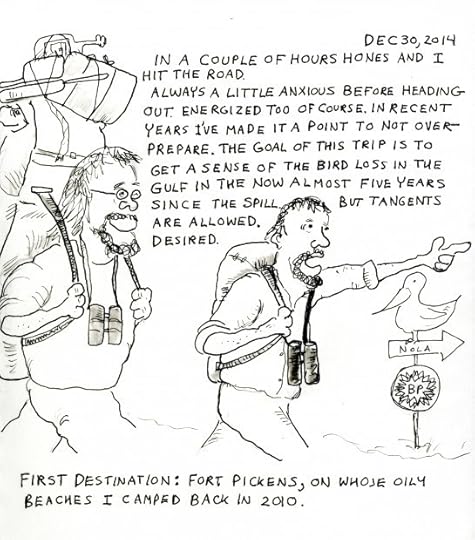 DEC 30, 2014
IN A COUPLE OF HOURS HONES AND I
HIT THE ROAD.
ALWAYS A LITTLE ANXIOUS BEFORE HEADING
OUT. ENERGIZED TOO OF COURSE. IN RECENT
YEARS I'VE MADE IT A POINT TO NOT OVER-
PREPARE. THE GOAL OF THIS TRIP IS TO
GET A SENSE OF THE BIRD LOSS IN THE
GULF IN THE NOW ALMOST FIVE YEARS
SINCE THE SPILL. BUT TANGENTS
ARE ALLOWED.
DESIRED.
NOLA
BP
FIRST DESTINATION: FORT PICKENS, ON WHOSE OILY
BEACHES I CAMPED BACK IN 2010.